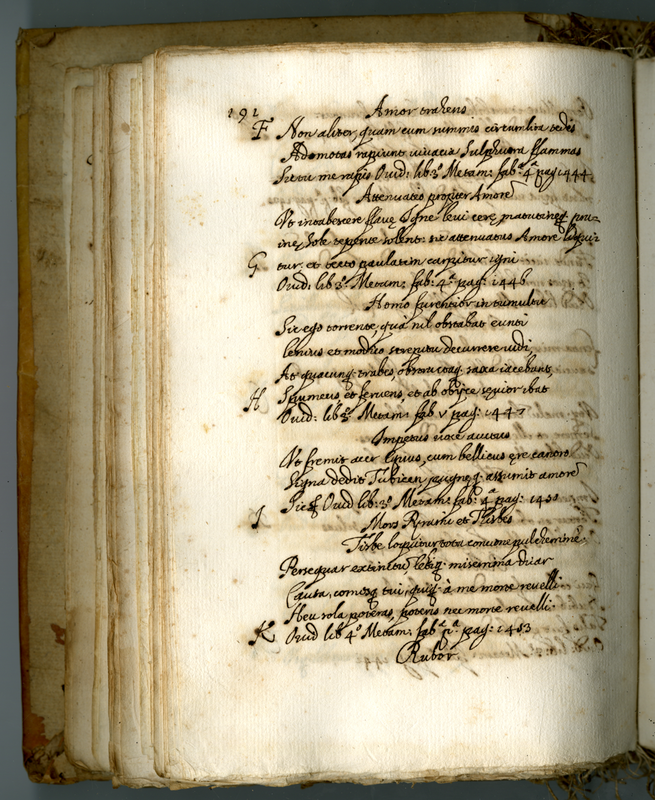 292
Amor trahens
F Non aliter, quam cum summis circumlita tedis
Admotas rapiunt vivacia Sulphura flammas
Sic tu me rapis Ovid: lib 3º Metam: fab: 4ª pag: 1444
Attenuatio propter Amorē
Vt intabescere flavę Igne levi cerę matutinęq. prui-
inę, Sole tepente solent: sic attenuatus Amore liqui-
G tur, et tecto paulatim carpitur igni
Ovid: lib 3º. Metam: fab: 4ª pag: 1446
Homo furentior in tumultu
Sic ego torrente, quā nil obstabat eunti
lenius et modico strepitu decurrere vidi,
At quacunq. trabes, obstructaq. saxa iacebant
H Spumeus et fervens, et ab obijce sęvior ibat
Ovid: lib 3º. Metam: fab v pag: 1447
Impetus voce auctus
Vt fremit acer equus, cum bellicus ęre canoro
Signa dedit Tubicen, pugnęq. assumit amorē
Sic & Ovid lib: 3º. Metam: fab: 4ª pag: 1450
I Mors Pirami et Thisbes
Tisbe loquitur
Persequar extinctū letiq. miserrima dicar
Causa, comesq. tui, quiq. à me morte revelli
Heu sola poteras, poteris nec morte revelli.
K Ovid lib 4º Metam: fab: pª. pag: 1453
Rubor